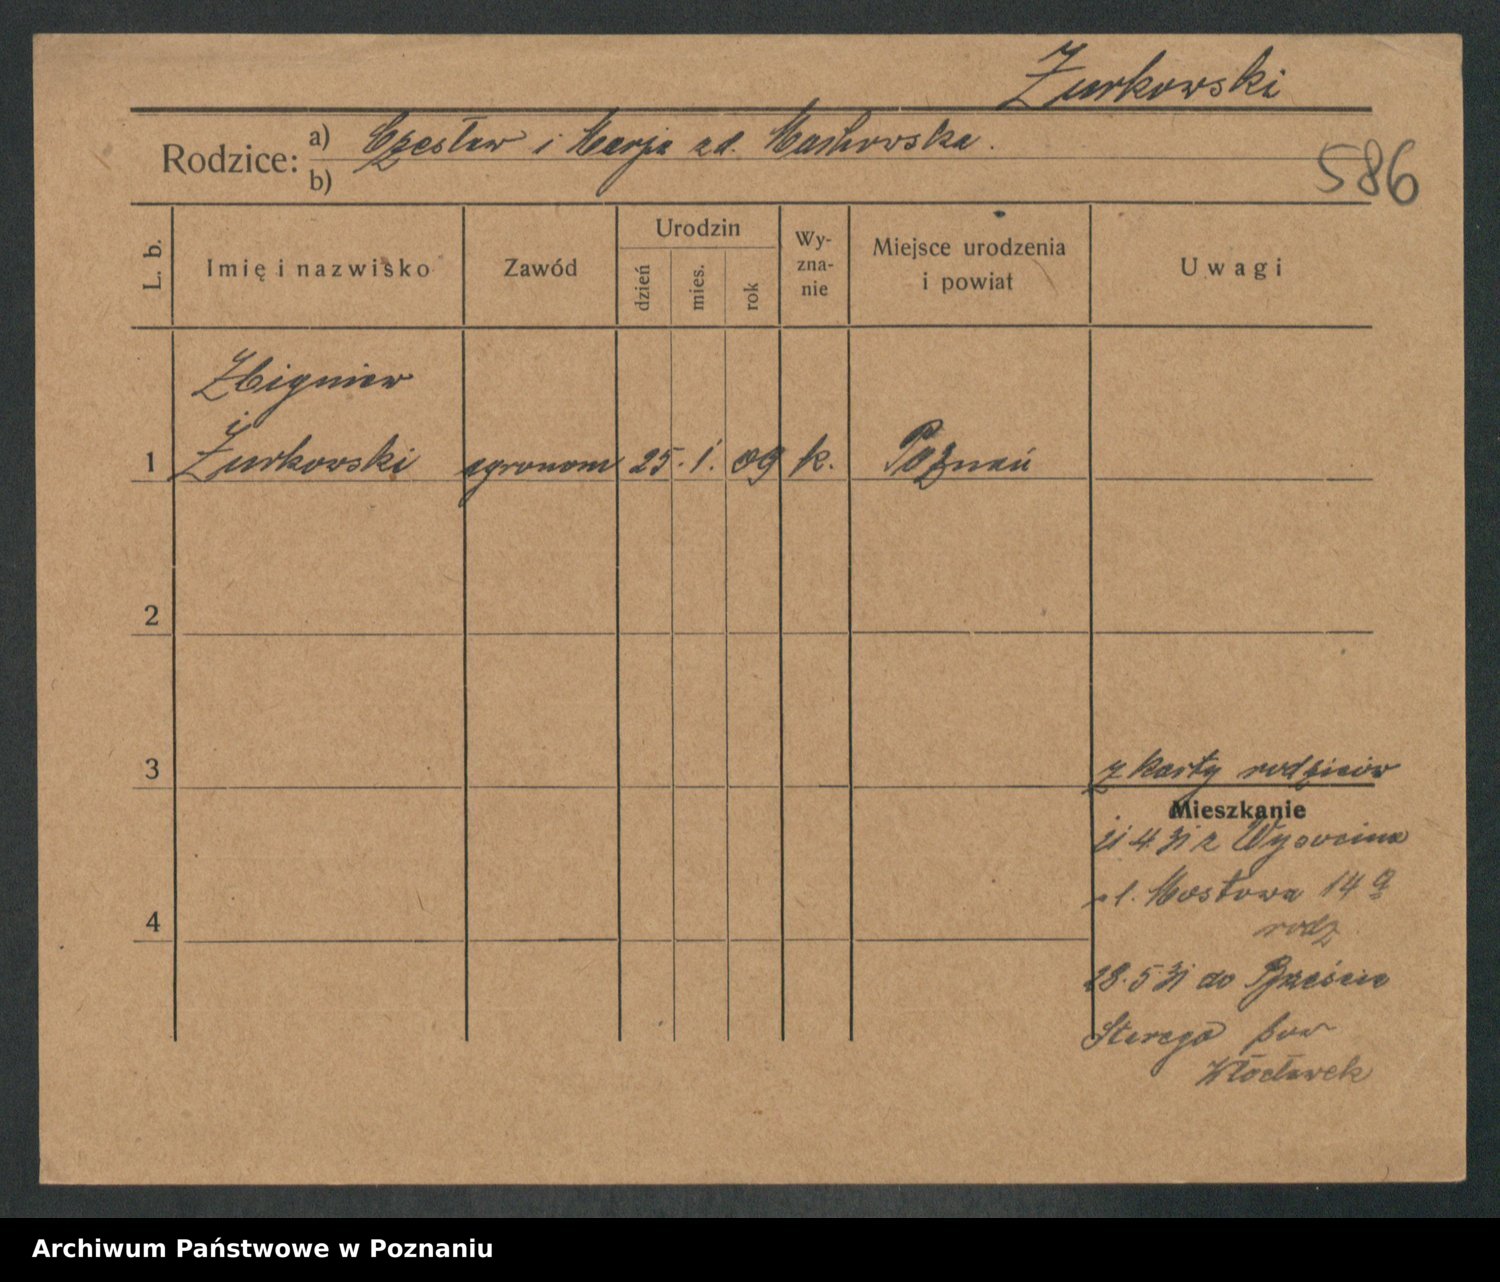 Żurkowski
Rodzice: a) Czesław i Marja zd. Maćkowska.
b)
586
L. b.
Imię i nazwisko
Zawód
Urodzin
dzień
mies.
rok
Wy-
zna-
nie
Miejsce urodzenia
i powiat
Uwagi
Zbigniew
1 Żurkowski agronom 25. 1. 09 k. Poznań
2
3
z karty rodziców
Mieszkanie
4 31 z
ul. Mostowa 14 a
rodz
4
28.5 31 do Brzeście
Starego pow
Włocławek
Archiwum Państwowe w Poznaniu